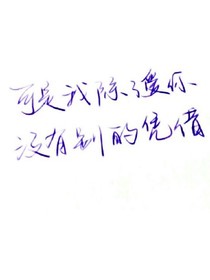 可是我除了愛你
没有别的凭借